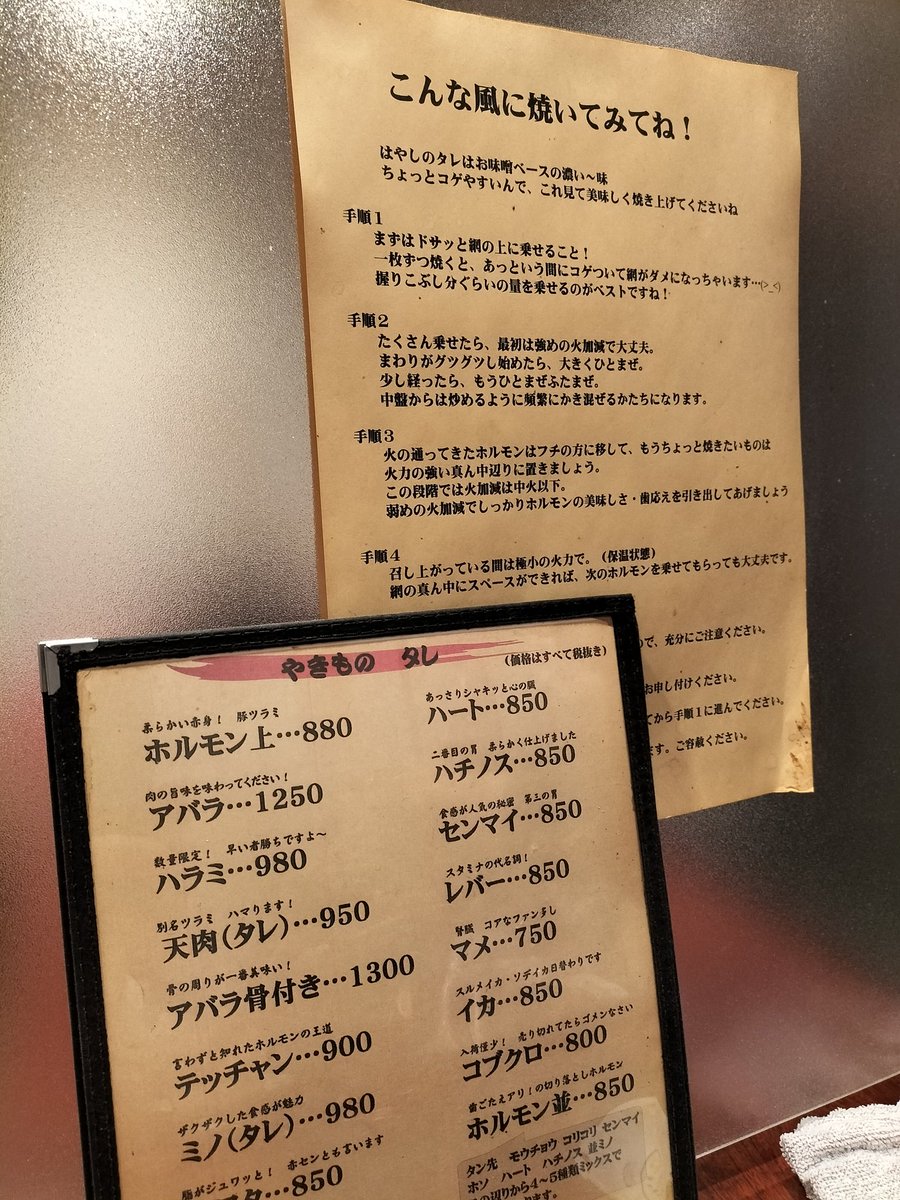 こんな風に焼いてみてね！
はやしのタレはお味噌ベースの濃い～味
ちょっとコゲやすいんで、これ見て美味しく焼き上げてくださいね
手順１
まずはドサッと網の上に乗せること！
一枚ずつ焼くと、あっという間にコゲついて網がダメになっちゃいます…(>_<)
握りこぶし分ぐらいの量を乗せるのがベストですね！
手順２
たくさん乗せたら、最初は強めの火加減で大丈夫。
まわりがグツグツし始めたら、大きくひとまぜ。
少し経ったら、もうひとまぜふたまぜ。
中盤からは炒めるように頻繁にかき混ぜるかたちになります。
手順３
火の通ってきたホルモンはフチの方に移して、もうちょっと焼きたいものは
火力の強い真ん中辺りに置きましょう。
この段階では火加減は中火以下。
弱めの火加減でしっかりホルモンの美味しさ・歯応えを引き出してあげましょう
手順４
召し上がっている間は極小の火力で。（保温状態）
網の真ん中にスペースができれば、次のホルモンを乗せてもらっても大丈夫です。
で、充分にご注意ください。
お申し付けください。
てから手順１に進んでください。
ます。ご容赦ください。
やきもの　タレ
（価格はすべて税抜き）
柔らかい赤身！　豚ツラミ
ホルモン上…880
肉の旨味を味わってください！
アバラ…1250
数量限定！　早い者勝ちですよ～
ハラミ…980
別名ツラミ　ハマります！
天肉（タレ）…950
骨の周りが一番美味い！
アバラ骨付き…1300
言わずと知れたホルモンの王道
テッチャン…900
ザクザクした食感が魅力
ミノ（タレ）…980
脂がジュワッと！　赤センとも言います
…850
あっさりシャキッと心の臓
ハート…850
二番目の胃　柔らかく仕上げました
ハチノス…850
食感が人気の秘密　第三の胃
センマイ…850
スタミナの代名詞！
レバー…850
腎臓　コアなファン多し
マメ…750
スルメイカ・ソデイカ日替わりです
イカ…850
入荷僅少！　売り切れてたらゴメンなさい
コブクロ…800
歯ごたえアリ！の切り落としホルモン
ホルモン並…850
タン先　モウチョウ　コリコリ　センマイ
ホソ　ハート　ハチノス　並ミノ
の辺りから４～５種類ミックスで